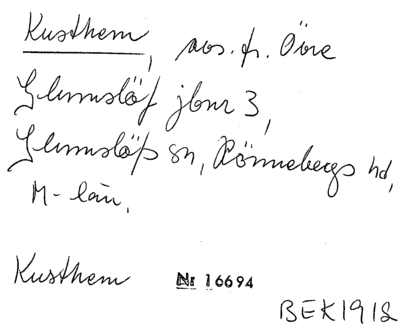 Kusthem, avs. fr. Övre
Glumslöf jbnr 3,
Glumslöfs sn, Rönnebergs hd,
M-län.
Kusthem Nr 16694
BEK1918